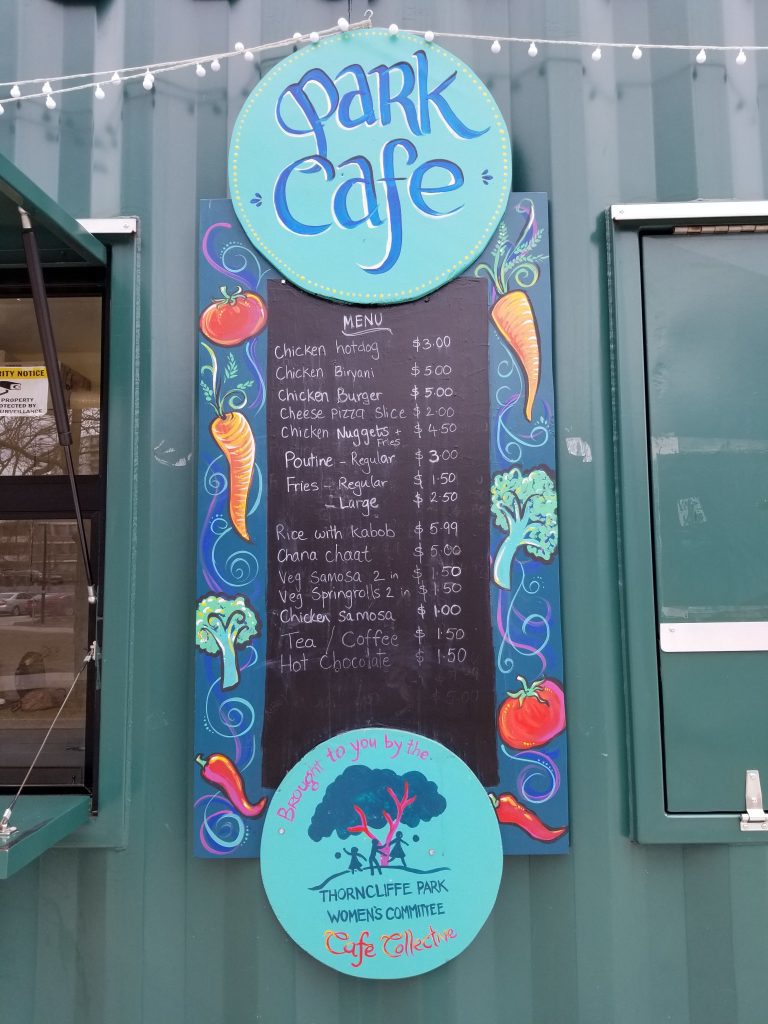 Park
Cafe
MENU
Chicken hotdog $3.00
Chicken Biryani $5.00
Chicken Burger $5.00
Cheese Pizza Slice $2.00
Chicken Nuggets + Fries $4.50
Poutine - Regular $3.00
Fries - Regular $1.50
- Large $2.50
Rice with kabob $5.99
Chana chaat $5.00
Veg Samosa 2 in $1.50
Veg Springrolls 2 in $1.50
Chicken Samosa $1.00
Tea / Coffee $1.50
Hot Chocolate $1.50
Brought to you by the
THORNCLIFFE PARK
WOMEN'S COMMITTEE
Cafe Collective
NOTICE
PROPERTY